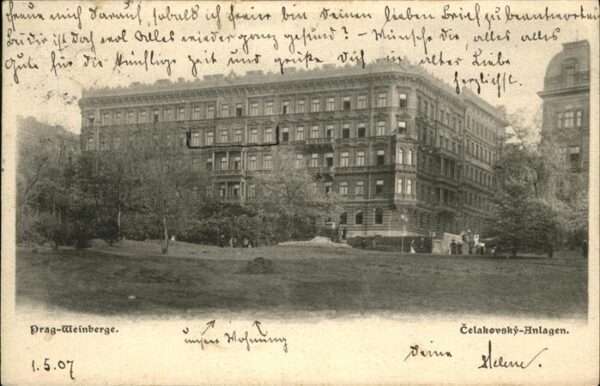 freue mich darauf, sobald ich freier bin Deinen lieben Brief zu beantworten.
Bei Dir ist doch wol Alles wieder ganz gesund? – Wünsche Dir, alles alles
Gute für die künftige Zeit und grüße Dich in alter Liebe
herzlichst.
Prag-Weinberge.
Čelakovský-Anlagen.
unsere Wohnung
1.5.07
Deine Helene